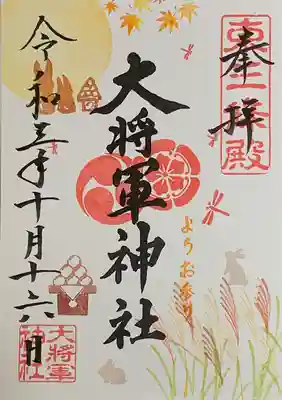 奉拝
大将軍神社
ようお参り
令和三年十月十六日
大将軍
神社